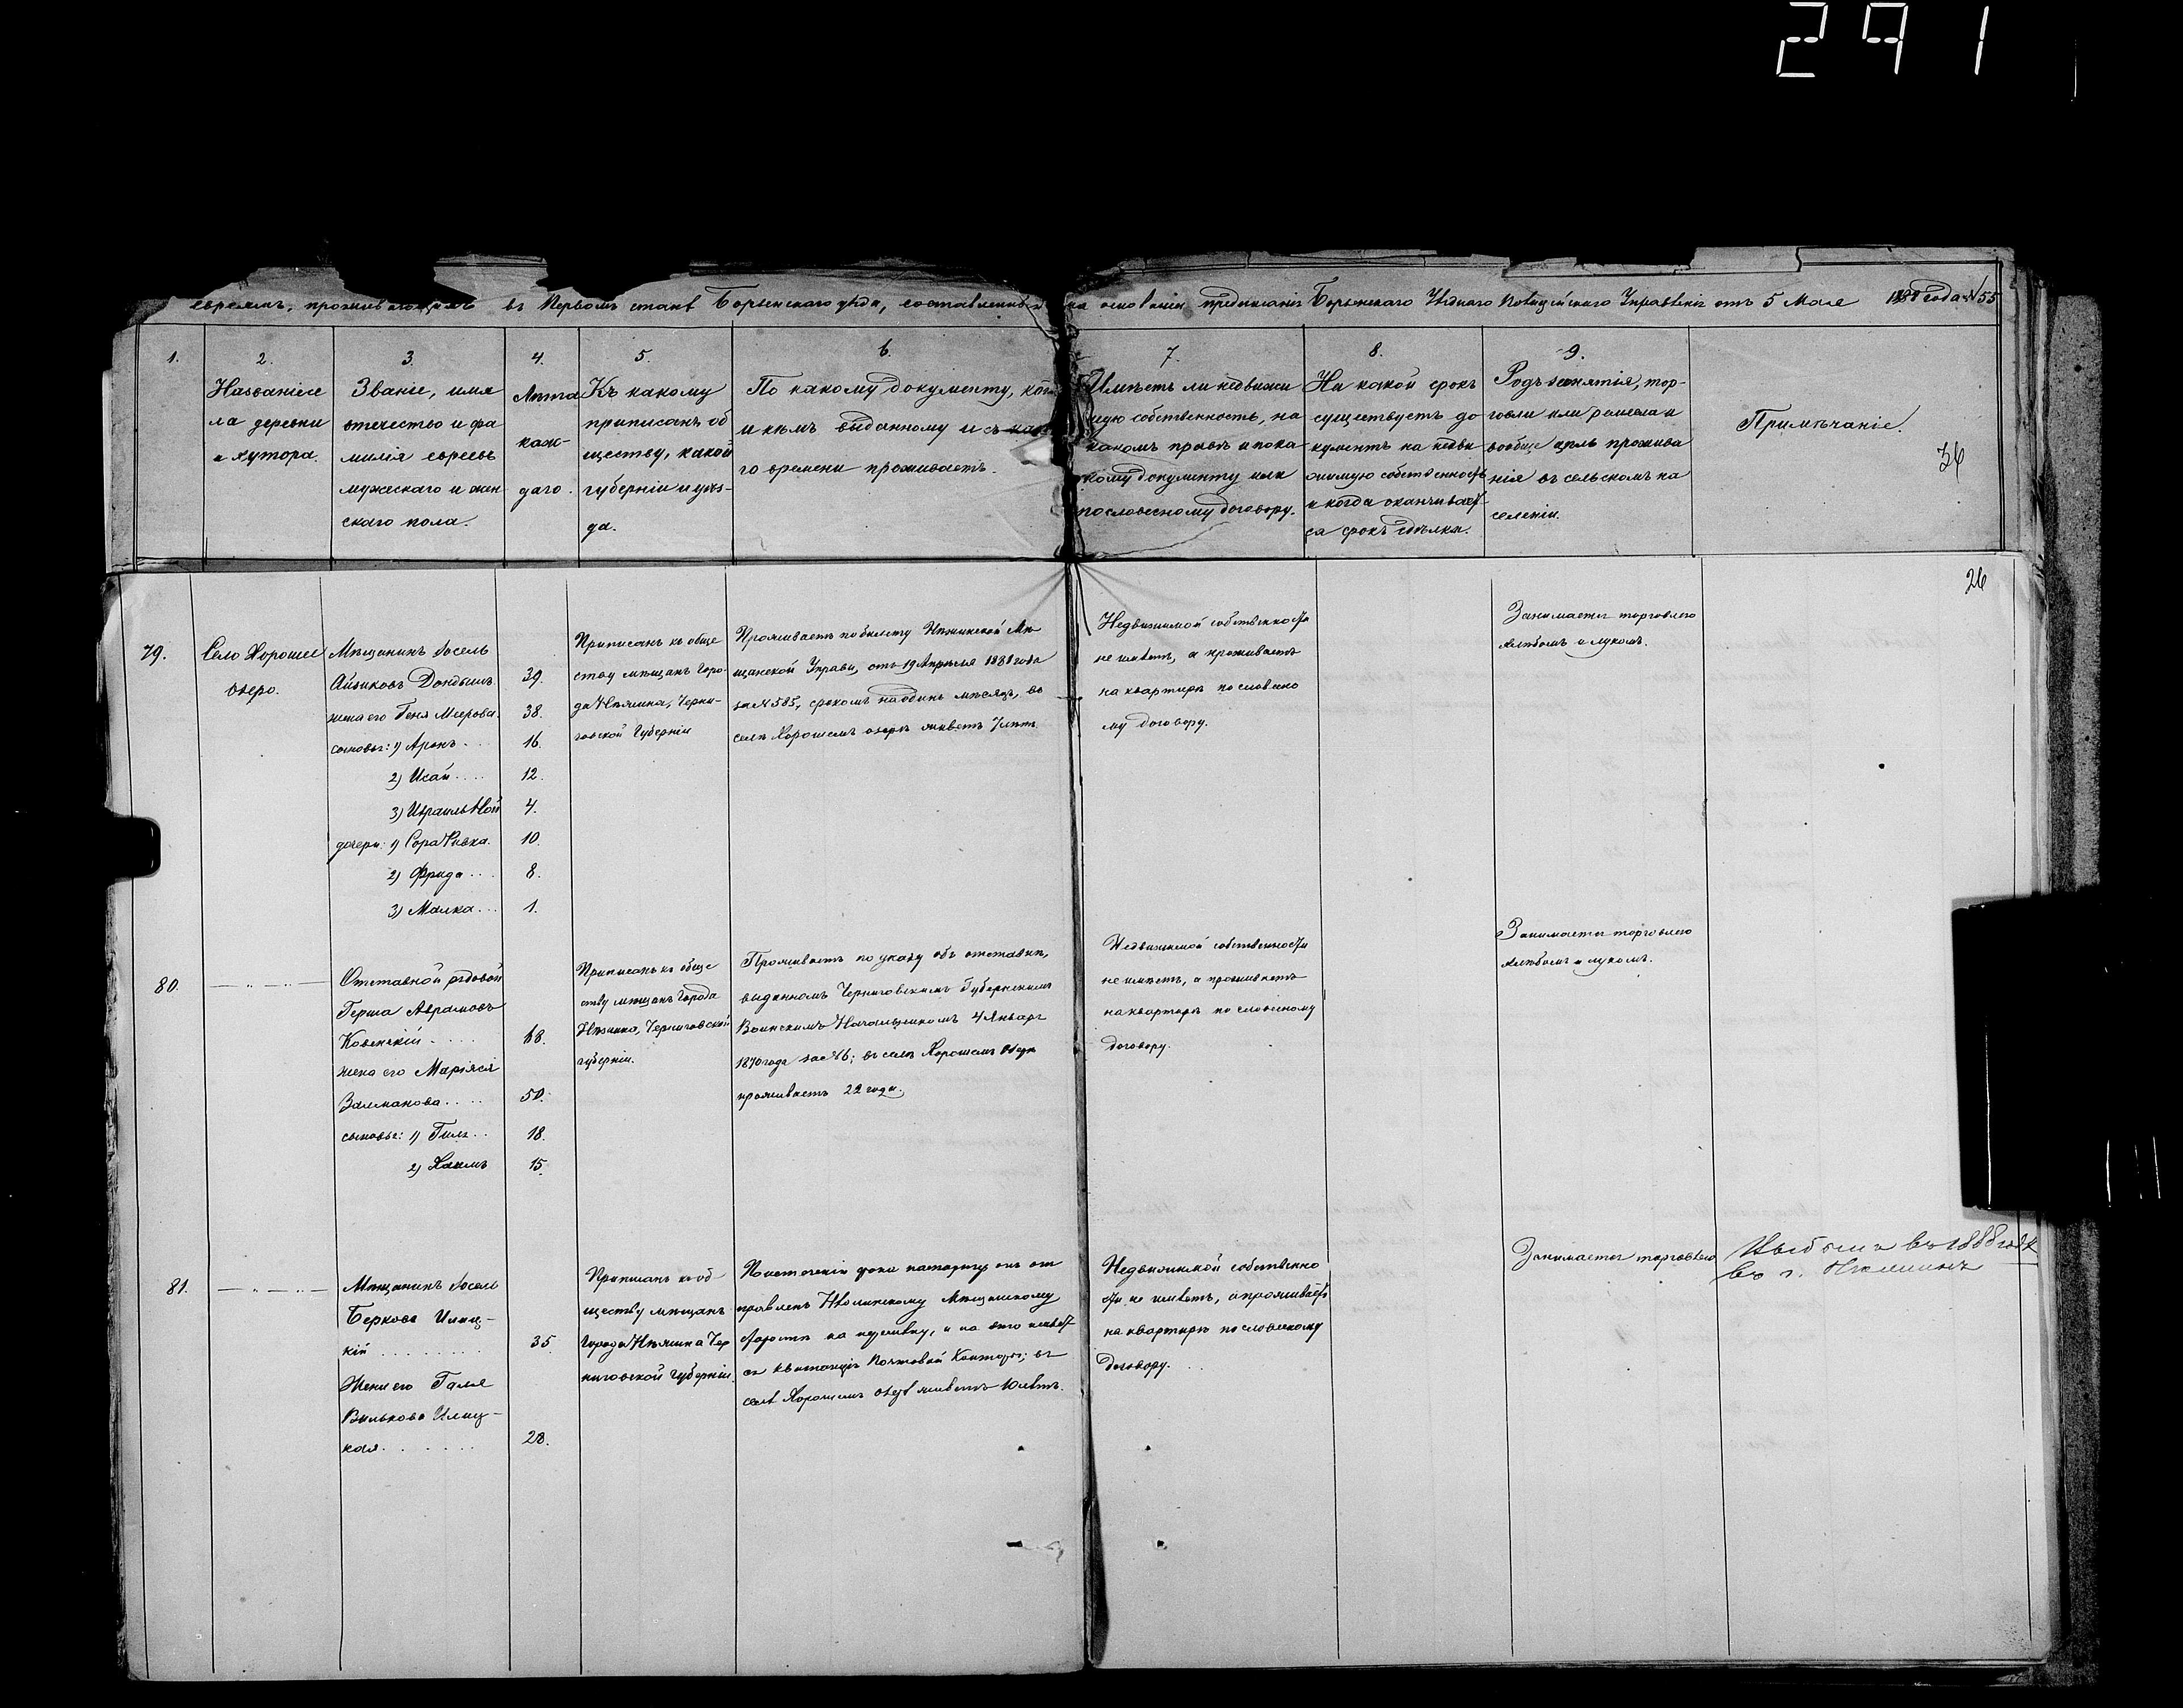 291
евреямъ, проживающимъ въ Первомъ станѣ Борзенскаго уѣзда, составленный на основаніи предписанія Борзенскаго Уѣзднаго Полицейскаго Управленія отъ 5 Мая 1881 года № 55
1.
2.
Названіе се
ла деревни
и хутора.
3.
Званіе, имя
отечество и фа
милія евреевъ
мужескаго и жен
скаго пола.
4.
Лѣта
каж-
даго.
5.
Къ какому
приписанъ об
ществу, какой
губерніи и уѣз-
да.
6.
По какому документу, когда
и кѣмъ выданному и съ како
го времени проживаетъ.
7.
Имѣетъ ли недвижи
мую собственность, на
какомъ правѣ и по ка
кому документу или
по словесному договору.
8.
На какой срокъ
существуетъ до
кументъ на недви
жимую собственность
и когда оканчивает
ся срокъ сдѣлки.
9.
Родъ занятія, тор-
говли или ремесла и
вообще цѣль прожива
нія въ сельскомъ на
селеніи.
Примѣчаніе.
36
26
79.
Село Хорошее
озеро.
Мѣщанинъ Іосель
Айзиковъ
39.
жена его Геня Меерова
38.
сыновья: 1) Аронъ ...
16.
2) Исай ....
12.
3) Израиль Ной
4.
дочери: 1) Сора Ривка.
10.
2) Фрида ...
8.
3) Малка ...
1.
Приписанъ къ обще
ству мѣщанъ Горо-
да Нѣжина, Черни-
говской Губерніи
Проживаетъ по билету Нѣжинской Мѣ
щанской Управы, отъ 19 Апрѣля 1881 года
за № 585, срокомъ на одинъ мѣсяцъ, въ
селѣ Хорошемъ озерѣ живетъ 7 лѣтъ
Недвижимой собственности
не имѣетъ, а проживаетъ
на квартирѣ по словесно
му договору.
Занимается торговлею
хлѣбомъ и лукомъ.
80.
— " — " —
Отставной рядовой
Герша Абрамовъ
Ковенскій ....
68.
жена его Маріяся
Залманова ....
50.
сыновья: 1) Гиля ..
18.
2) Хаимъ
15.
Приписанъ къ обще
ству мѣщанъ Города
Нѣжина, Черниговской
губерніи.
Проживаетъ по указу объ отставкѣ,
выданномъ Черниговскимъ Губернскимъ
Воинскимъ Начальникомъ 4 Января
1870 года за № 6; въ селѣ Хорошемъ Озерѣ
проживаетъ 22 года.
Недвижимой собственности
не имѣетъ, а проживаетъ
на квартирѣ по словесному
договору.
Занимается торговлею
хлѣбомъ и лукомъ.
81.
— " — " —
Мѣщанинъ Іосель
Берковъ Илиц-
кій .........
35.
Жена его Галя
Вилькова Илиц-
кая .......
28.
Приписанъ къ об
ществу мѣщанъ
Города Нѣжина Чер
ниговской Губерніи.
По истеченіи срока паспорту, онъ от
правленъ Нѣжинскому Мѣщанскому
Старостѣ на перемѣну, и на это имѣет
ся квитанція Почтовой Конторы; въ
селѣ Хорошемъ озерѣ живетъ 10 лѣтъ.
Недвижимой собственно
сти не имѣетъ, а проживаетъ
на квартирѣ по словесному
договору.
Занимается торговлею
Выбыли въ 1888 году
въ г. Нѣжинъ